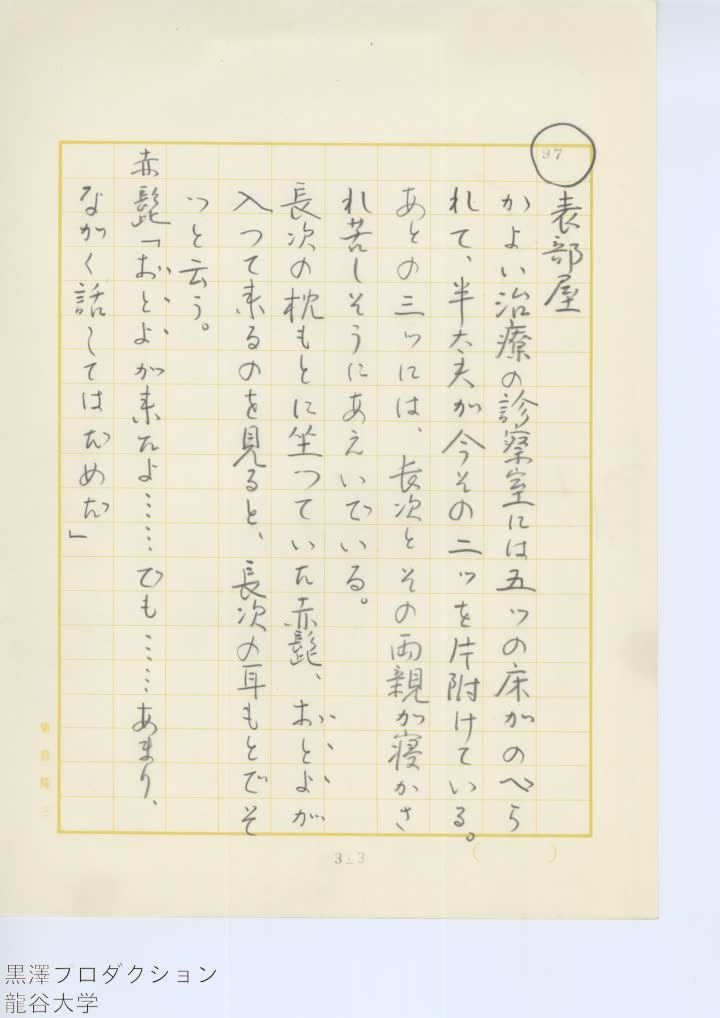 97
表部屋
かよい治療の診察室には五ツの床がのべら
れて、半太夫が今その二ッを片附けている。
あとの三ッには、長次とその両親が寝かさ
れ苦しそうにあえいでいる。
長次の枕もとに坐っていた赤髭、おとよが
入って来るのを見ると、長次の耳もとでそ
っと云う。
赤髭「おとよが来たよ……でも……あまり、
ながく話してはだめだ」
313
黒澤プロダクション
龍谷大学